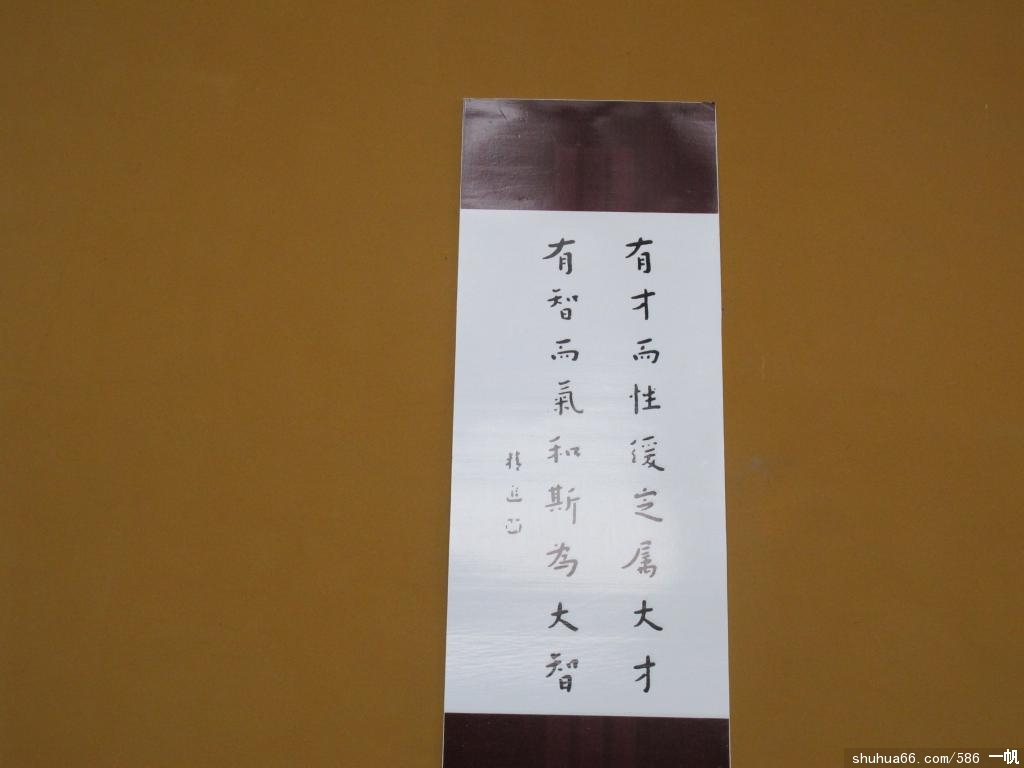 有才而性缓定属大才
有智而氣和斯為大智
精進
shuhua66.com/586 一帆